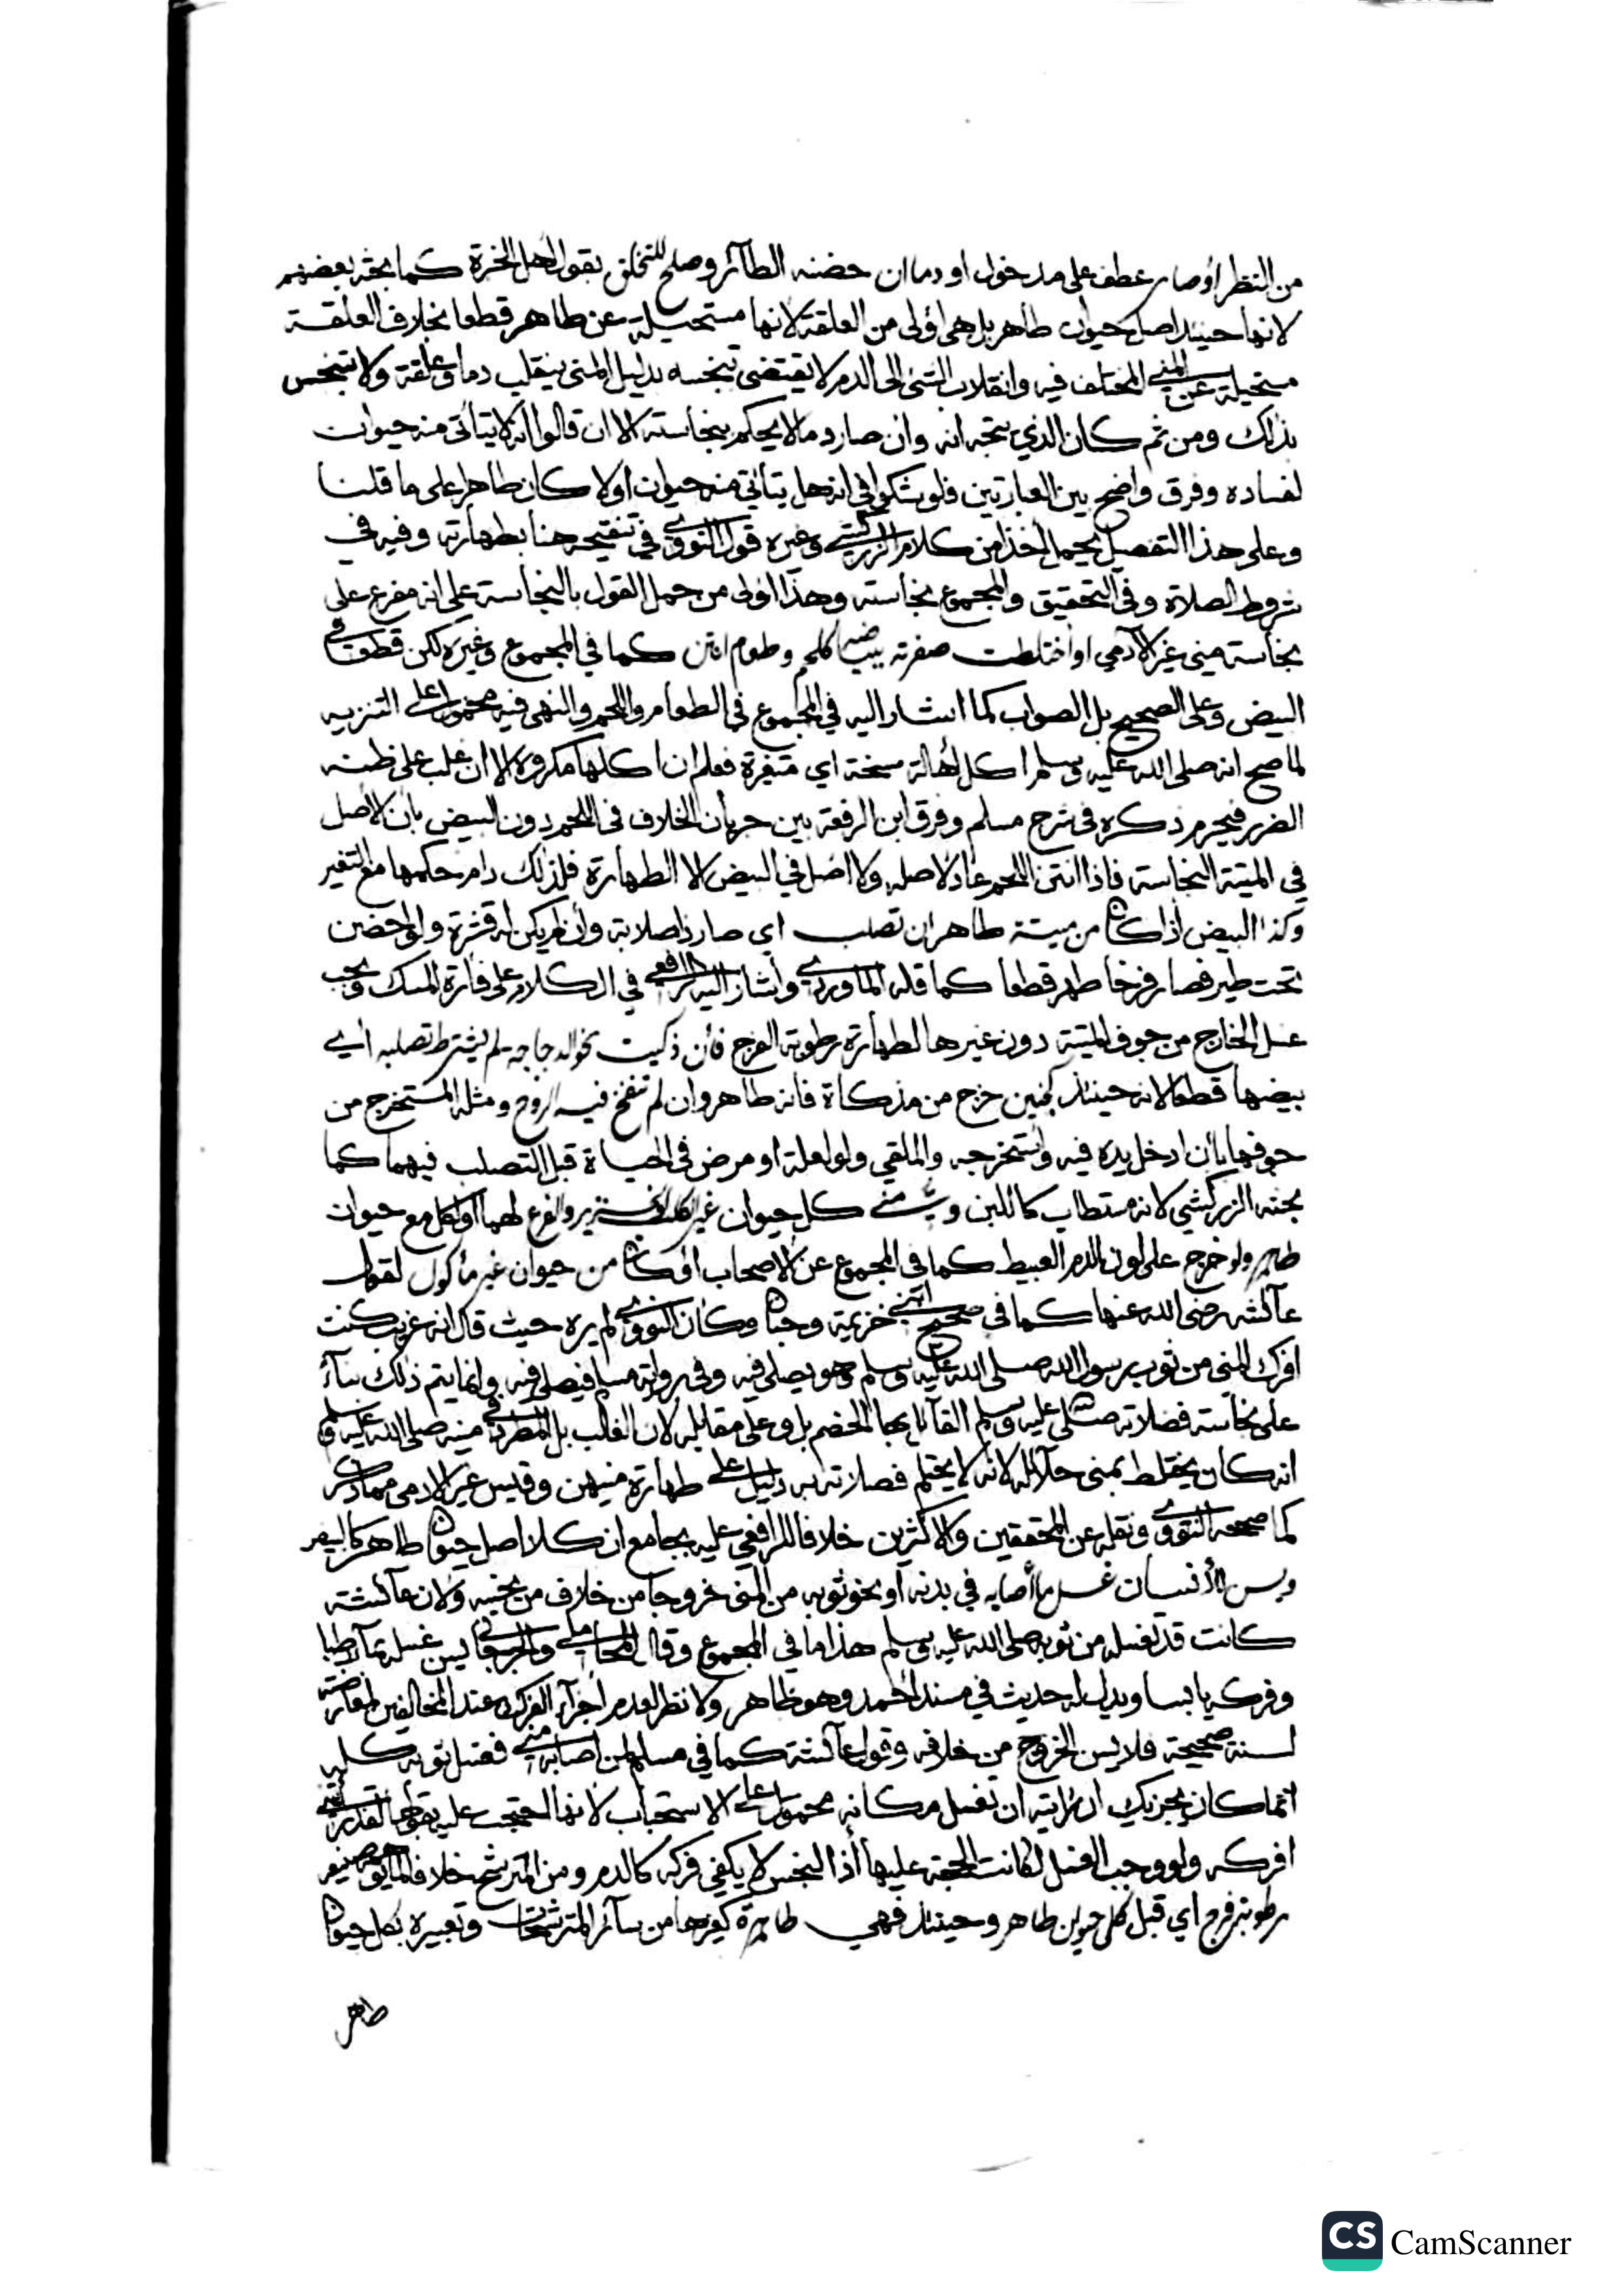 من النظر او صار عطف على مدخول او دما ان حضنه الطائر وصلح للتخلق بقول اهل الخبرة كما بحثه بعضهم
لانها حينئذ اصل حيوان طاهر بل هى اولى من العلقة لانها مستحيلة عن طاهر قطعا بخلاف العلقة
مستحيلة عن المنى المختلف فيه وانقلاب الشئ الى الدم لا يقتضى تنجسه بدليل المنى ينقلب دما وعلقة ولا تنجس
بذلك ومن ثم كان الذي يتجه انه وان صار دما لا يحكم بنجاسته الا ان قالوا انه لا يتأتى منه حيوان
لفساده وفرق واضح بين العبارتين فلو شكوا فى انه هل يتأتى منه حيوان اولا كان طاهرا على ما قلنا
وعلى هذا التفصيل يحمل اخذا من كلام الزركشي وغيره قول النووي فى تنقيحه هنا بطهارته وفيه في
شروط الصلاة وفى التحقيق والمجموع بنجاسته وهذا اولى من حمل القول بالنجاسة على انه مفرع على
نجاسة منى غير الآدمي او اختلطت صفرته ببياضه كلحم وطعام انتن كما في المجموع وغيره لكن قطعا في
البيض وعلى الصحيح بل الصواب كما اشار اليه في المجموع فى الطعام واللحم والنهى فيه محمول على التنزيه
لما صح انه صلى الله عليه وسلم اكل اهالة سنخة اي متغيرة فعلم ان اكلها مكروه الا ان غلب على ظنه
الضرر فيحرم ذكره فى شرح مسلم وفرق ابن الرفعة بين جريان الخلاف فى اللحم دون البيض بان الاصل
في الميتة النجاسة فاذا انتن اللحم عاد لاصله ولا اصل في البيض الا الطهارة فلذلك دام حكمها مع التغير
وكذا البيض اذا كان من ميتة طاهر ان تصلب اي صار ذا صلابة وان لم يكن له قشرة ولو حضن
تحت طير فصار فرخا طهر قطعا كما قاله الماوردي واشار اليه الرافعي في الكلام على فارة المسك ويجب
غسل الخارج من جوف الميتة دون غيرها لطهارة رطوبة الفرج فان ذكيت نحو الدجاجة لم يشترط تصلبه اي
بيضها قطعا لانه حينئذ كجنين خرج من مذكاة فانه طاهر وان لم تنفخ فيه الروح ومثله المستخرج من
جوفها بان ادخل يده فيه واستخرجه والملقي ولو لعلة او مرض فى الحياة قبل التصلب فيهما كما
بحثه الزركشي لانه مستطاب كاللبن و منى كل حيوان غير الكلب والخنزير والفرع لهما او لكل مع حيوان
طاهر ولو خرج على لون الدم العبيط كما فى المجموع عن الاصحاب او كان من حيوان غير مأكول لقول
عائشة رضى الله عنها كما فى صحيحي ابني خزيمة وحبان وكان النووي لم يره حيث قال انه غريب كنت
افرك المنى من ثوب رسول الله صلى الله عليه وسلم وهو يصلى فيه وفى رواية مسلم فيصلى فيه وانما يتم ذلك بناء
على نجاسة فضلاته صلى الله عليه وسلم القائل بها الخصم بل وعلى مقابله لان الغالب بل المطرد في منيه صلى الله عليه وسلم
انه كان يختلط بمنى حلائله لانه لا يحتلم فصلاته به دليل على طهارة منيهن وقيس غير الادمى مما ذكر
كما صححه النووي ونقله عن المحققين والاكثرين خلافا للرافعي عليه بجامع ان كلا اصل حيوان طاهر كالبيض
ويسن للانسان غسل ما أصابه في بدنه او نحو ثوبه من المنى خروجا من خلاف من نجسه ولان عائشة
كانت قد تغسله من ثوبه صلى الله عليه وسلم هذا ما في المجموع وقال المحاملي والجرجاني يسن غسله بماء رطبا
وفركه يابسا ويدل له حديث في مسند احمد وهو ظاهر ولا نظر لعدم اجزاء الفرك عند المخالفين لمعارضته
لسنة صحيحة فلا يسن الخروج من خلافه وقول عائشة كما في مسلم لمن اصابه منى فغسل ثوبه كله
انما كان يجزيك ان رايته ان تغسل مكانه محمول على الاستحباب لانها احتجت عليه بقولها لقد رايتني
افركه ولو وجب الغسل لكانت الحجة عليها اذ النجس لا يكفي فركه كالدم ومن المترشح خلافا لما يوهمه صنيعه
رطوبة فرج اي قبل كل حيوان طاهر وحينئذ فهي طاهرة كغيرها من سائر المترشحات وتعبيره بكل حيوان
طاهر
CS CamScanner